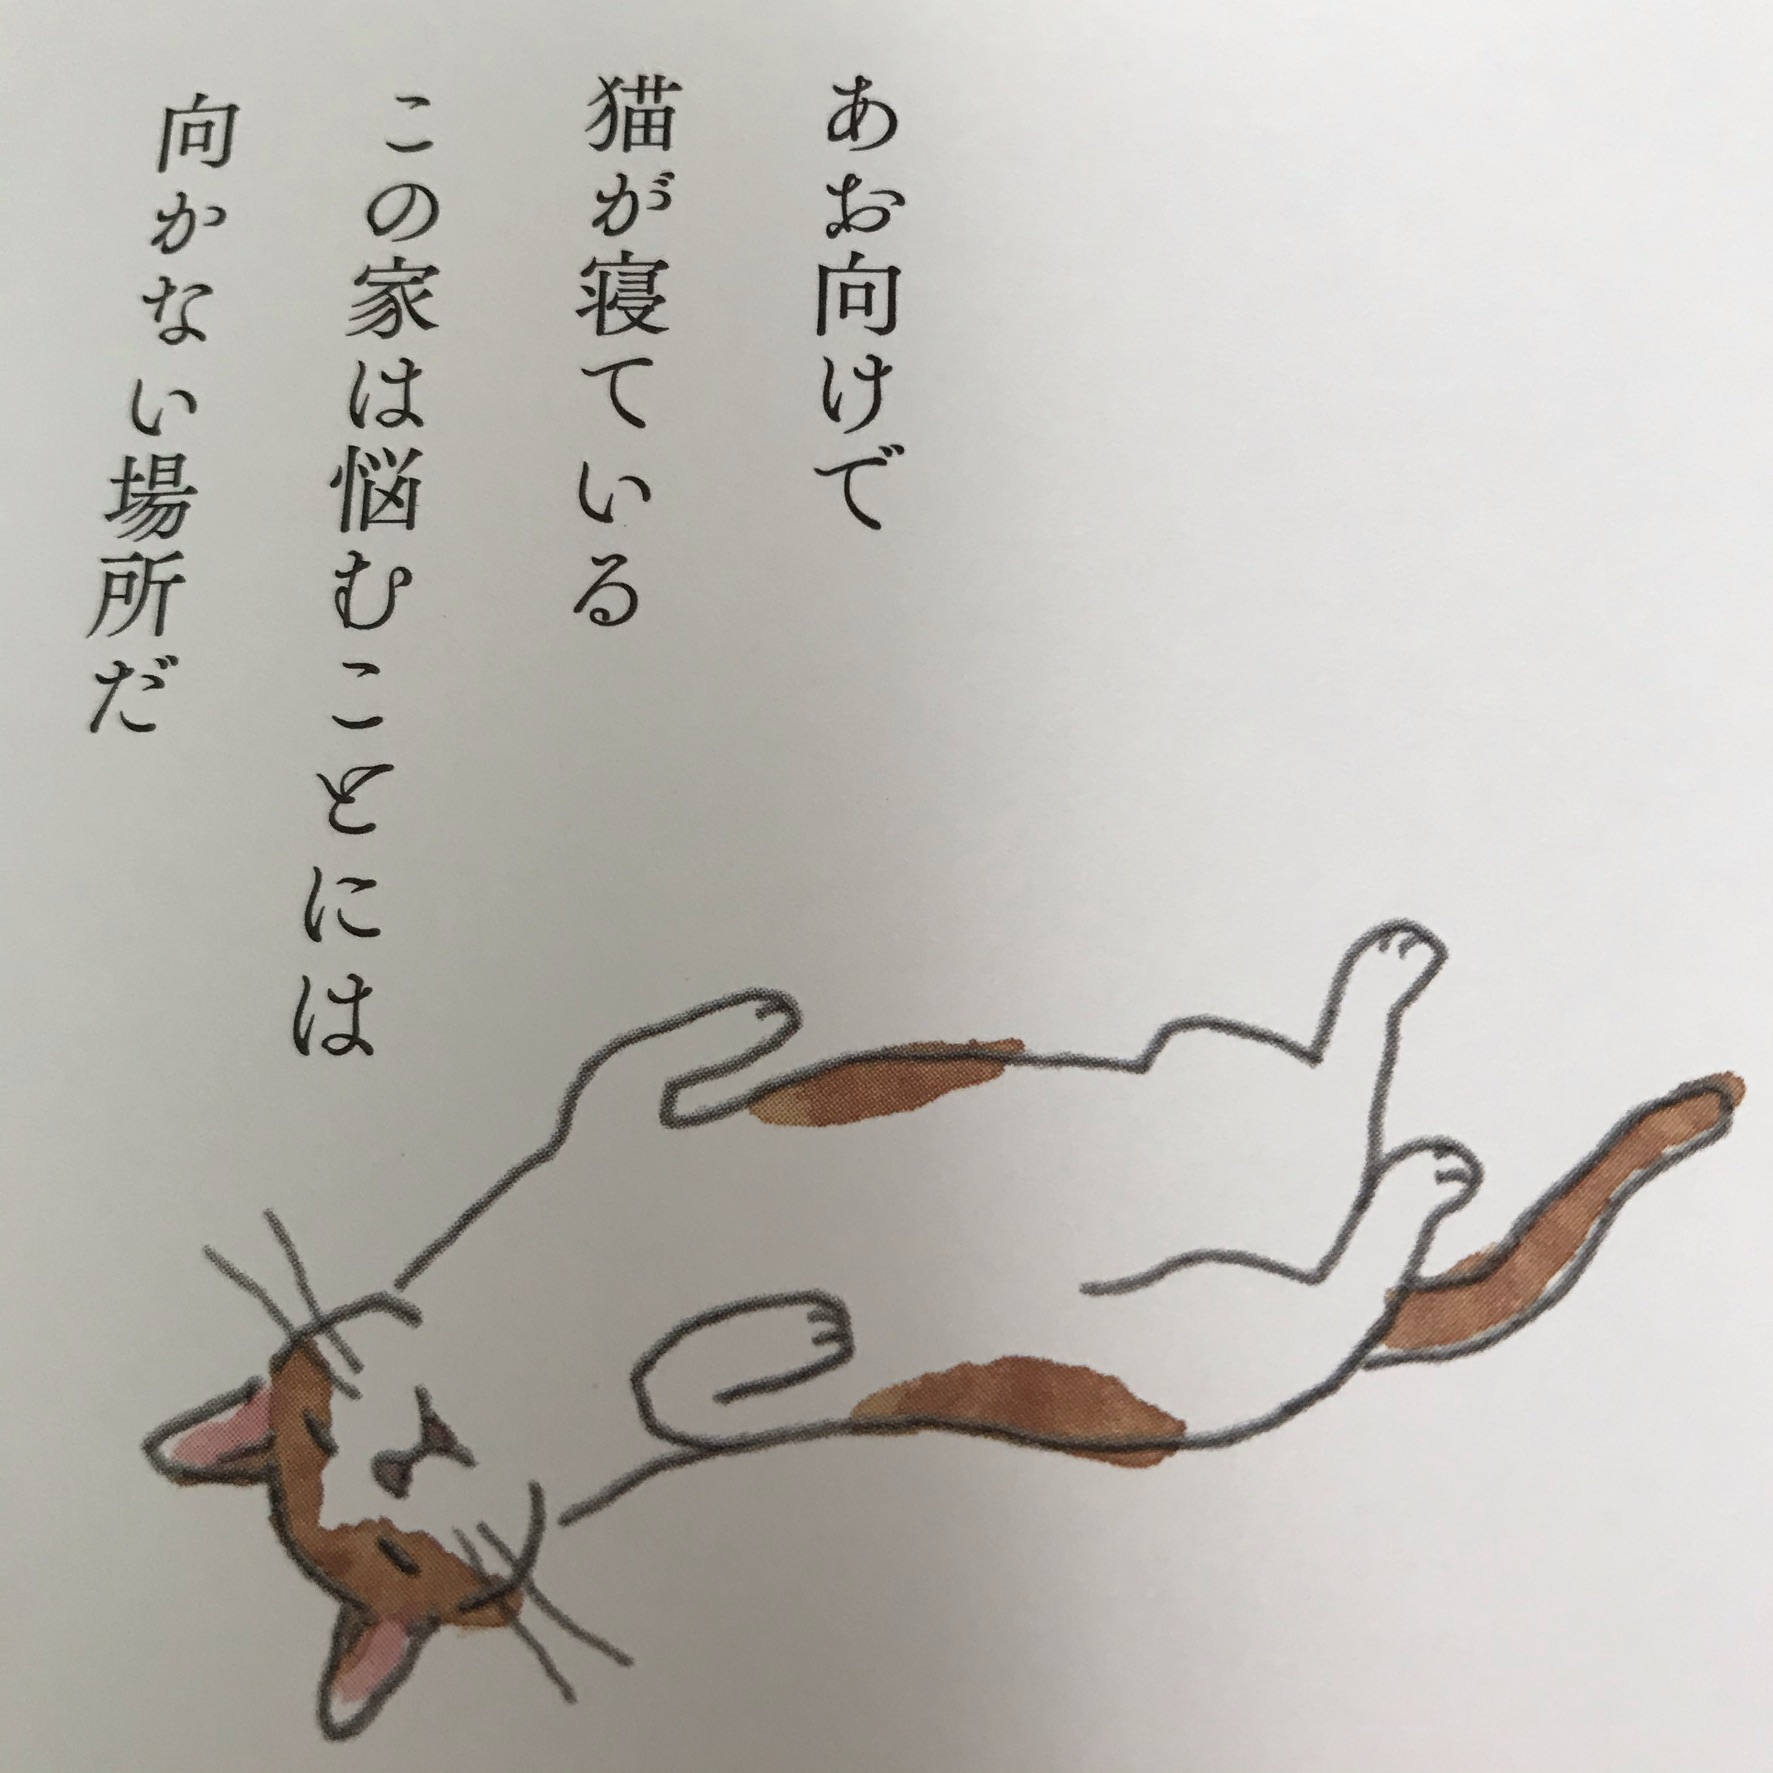 あお向けで
猫が寝ている
この家は悩むことには
向かない場所だ